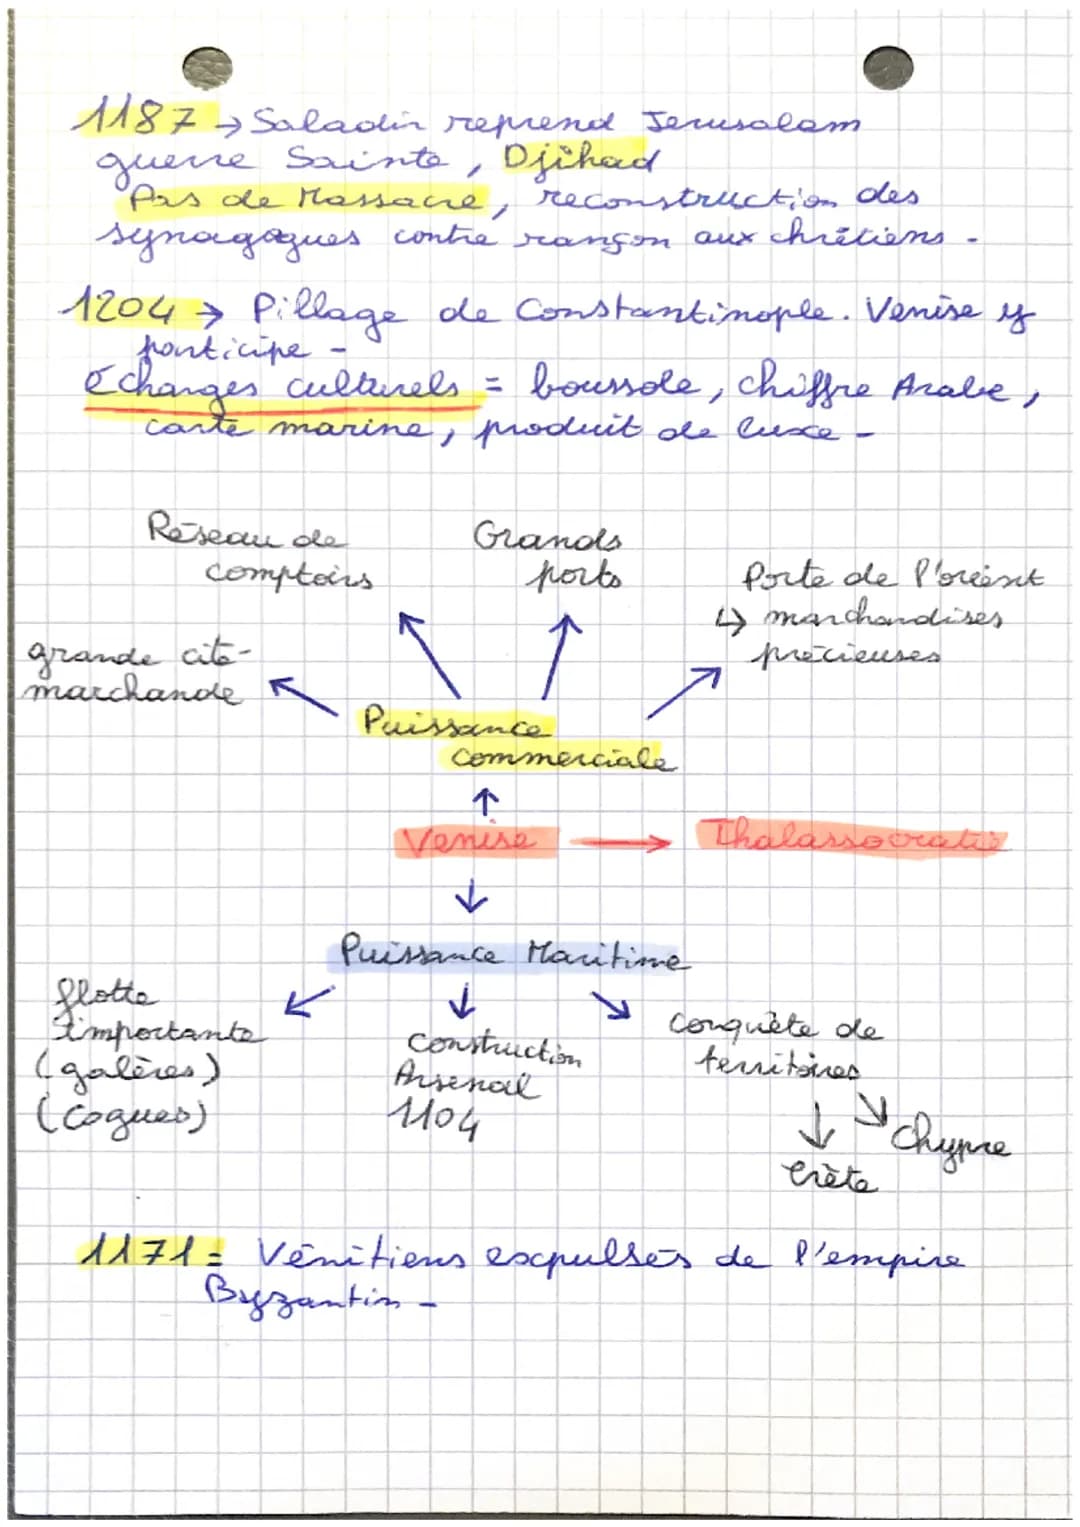 1187 → Saladin reprend Jerusalem
guerre Sainte, Djihad
Pas de Massacre, reconstruction des
synagogues contre rançon aux chrétiens.
1204 → Pillage de Constantinople. Venise y
participe -
Echanges culturels = boussole, chiffre Arabe,
carte marine, produit de luxe -
Réseau de
comptoirs
Grands
ports
Porte de l'orient
↳ marchandises
précieuses
grande cité-
marchande
Puissance
commerciale
Venise → Thalassocratie
Puissance Maritime
flotte
importante
(galères)
(Cogues)
Construction
Arsenal
1104
Conquête de
territoires
Chypre
Crète
1171 = Vénitiens expulsés de l'empire
Byzantin -